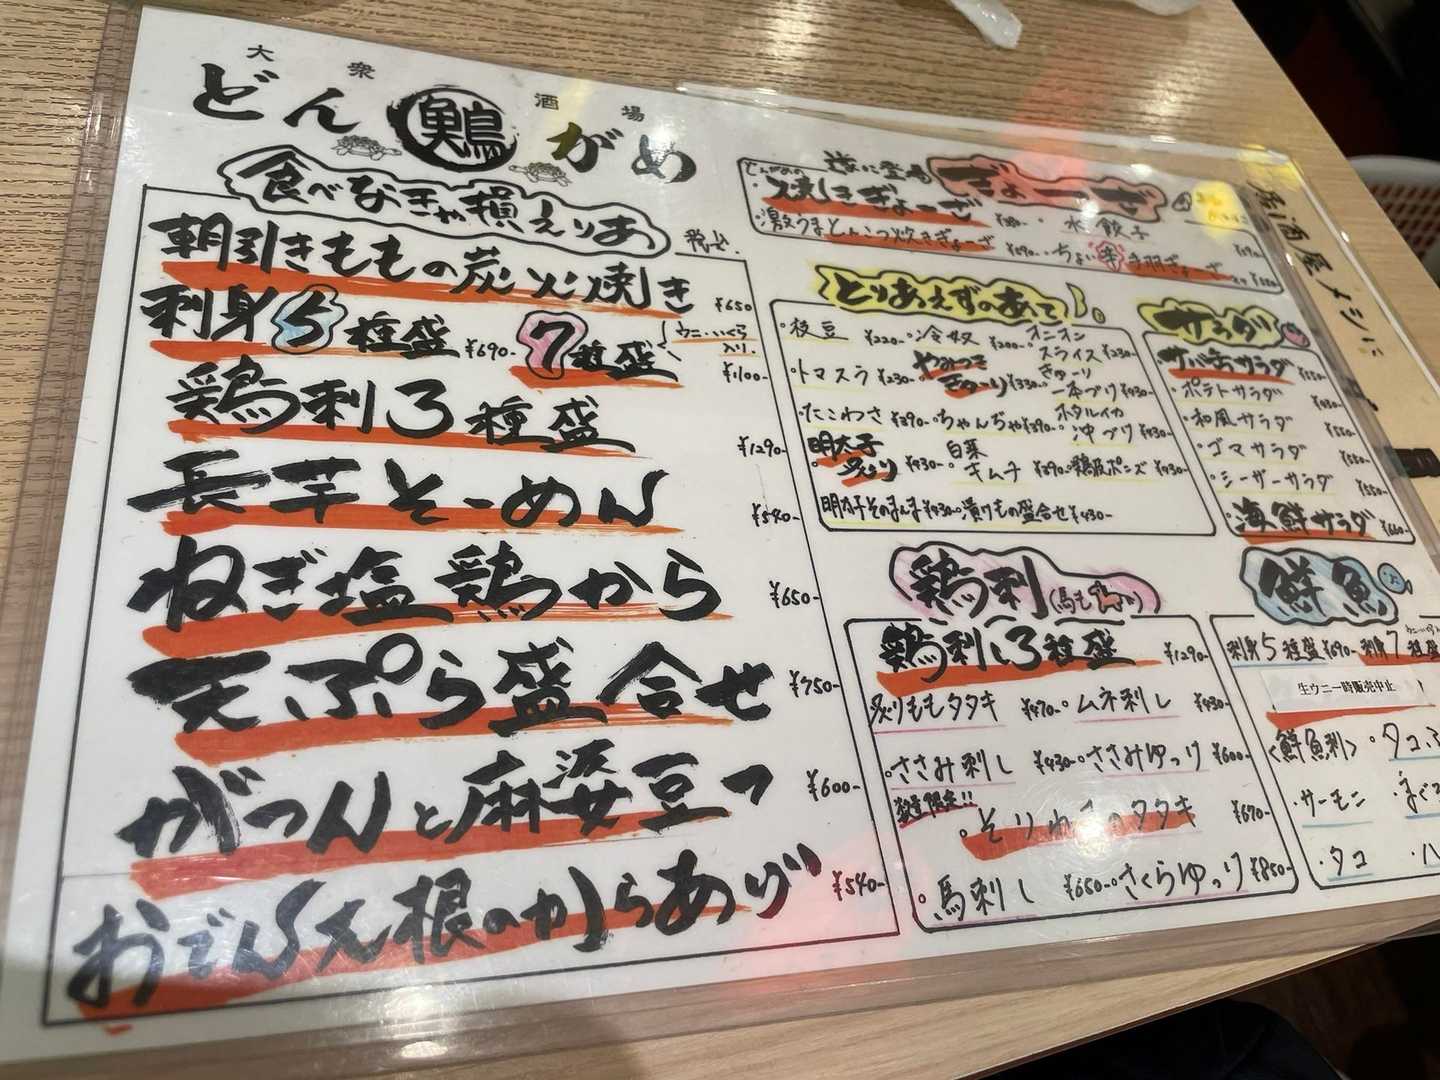 大衆酒場
どん鶏がめ
食べなきゃ損えりあ
税込
朝引きももの炭火焼き ¥650
刺身5種盛 ¥690- 7種盛 ウニ・いくら入り ¥1100-
鶏刺3種盛 ¥1290-
長芋そーめん ¥540-
ねぎ塩鶏から ¥650-
天ぷら盛合せ ¥750-
がつんと麻婆豆フ ¥600-
おでん大根のからあげ ¥540-
遂に登場 ぎょーざ
どんがめの
・焼きぎょーざ ・水餃子
・激うまとんこつ炊きぎょーざ ・ちょい辛手羽ぎょーざ
とりあえずのあて
・枝豆 ¥220- ・冷奴 ¥200- オニオンスライス ¥230-
・トマスラ ¥230- やみつききゅーり ¥330- きゅーり一本づけ ¥430-
・たこわさ ¥390- ・ちゃんぢゃ ¥390- ホタルイカ沖づけ ¥430-
・明太子炙り ¥430- 白菜キムチ ¥390- 鶏皮ポンズ ¥430-
明太子そのまんま ¥430- ・漬けもの盛合せ ¥430-
サラダ
サバ缶サラダ ¥550-
・ポテトサラダ ¥430-
・和風サラダ ¥550-
・ゴマサラダ ¥550-
・シーザーサラダ ¥550-
・海鮮サラダ ¥660-
鶏刺(馬もあり)
鶏刺し3種盛 ¥1290-
炙りももタタキ ¥470- ・ムネ刺し ¥430-
・ささみ刺し ¥430- ・ささみゆっけ ¥600-
数量限定!!
・そりれすのタタキ ¥670-
・馬刺し ¥650- ・さくらゆっけ ¥850-
鮮魚
刺身5種盛 ¥690- 刺身7種盛
生ウニ一時販売中止
〈鮮魚刺〉 ・タコ
・サーモン ・まぐろ
・タコ ・ハ
居酒屋メシに